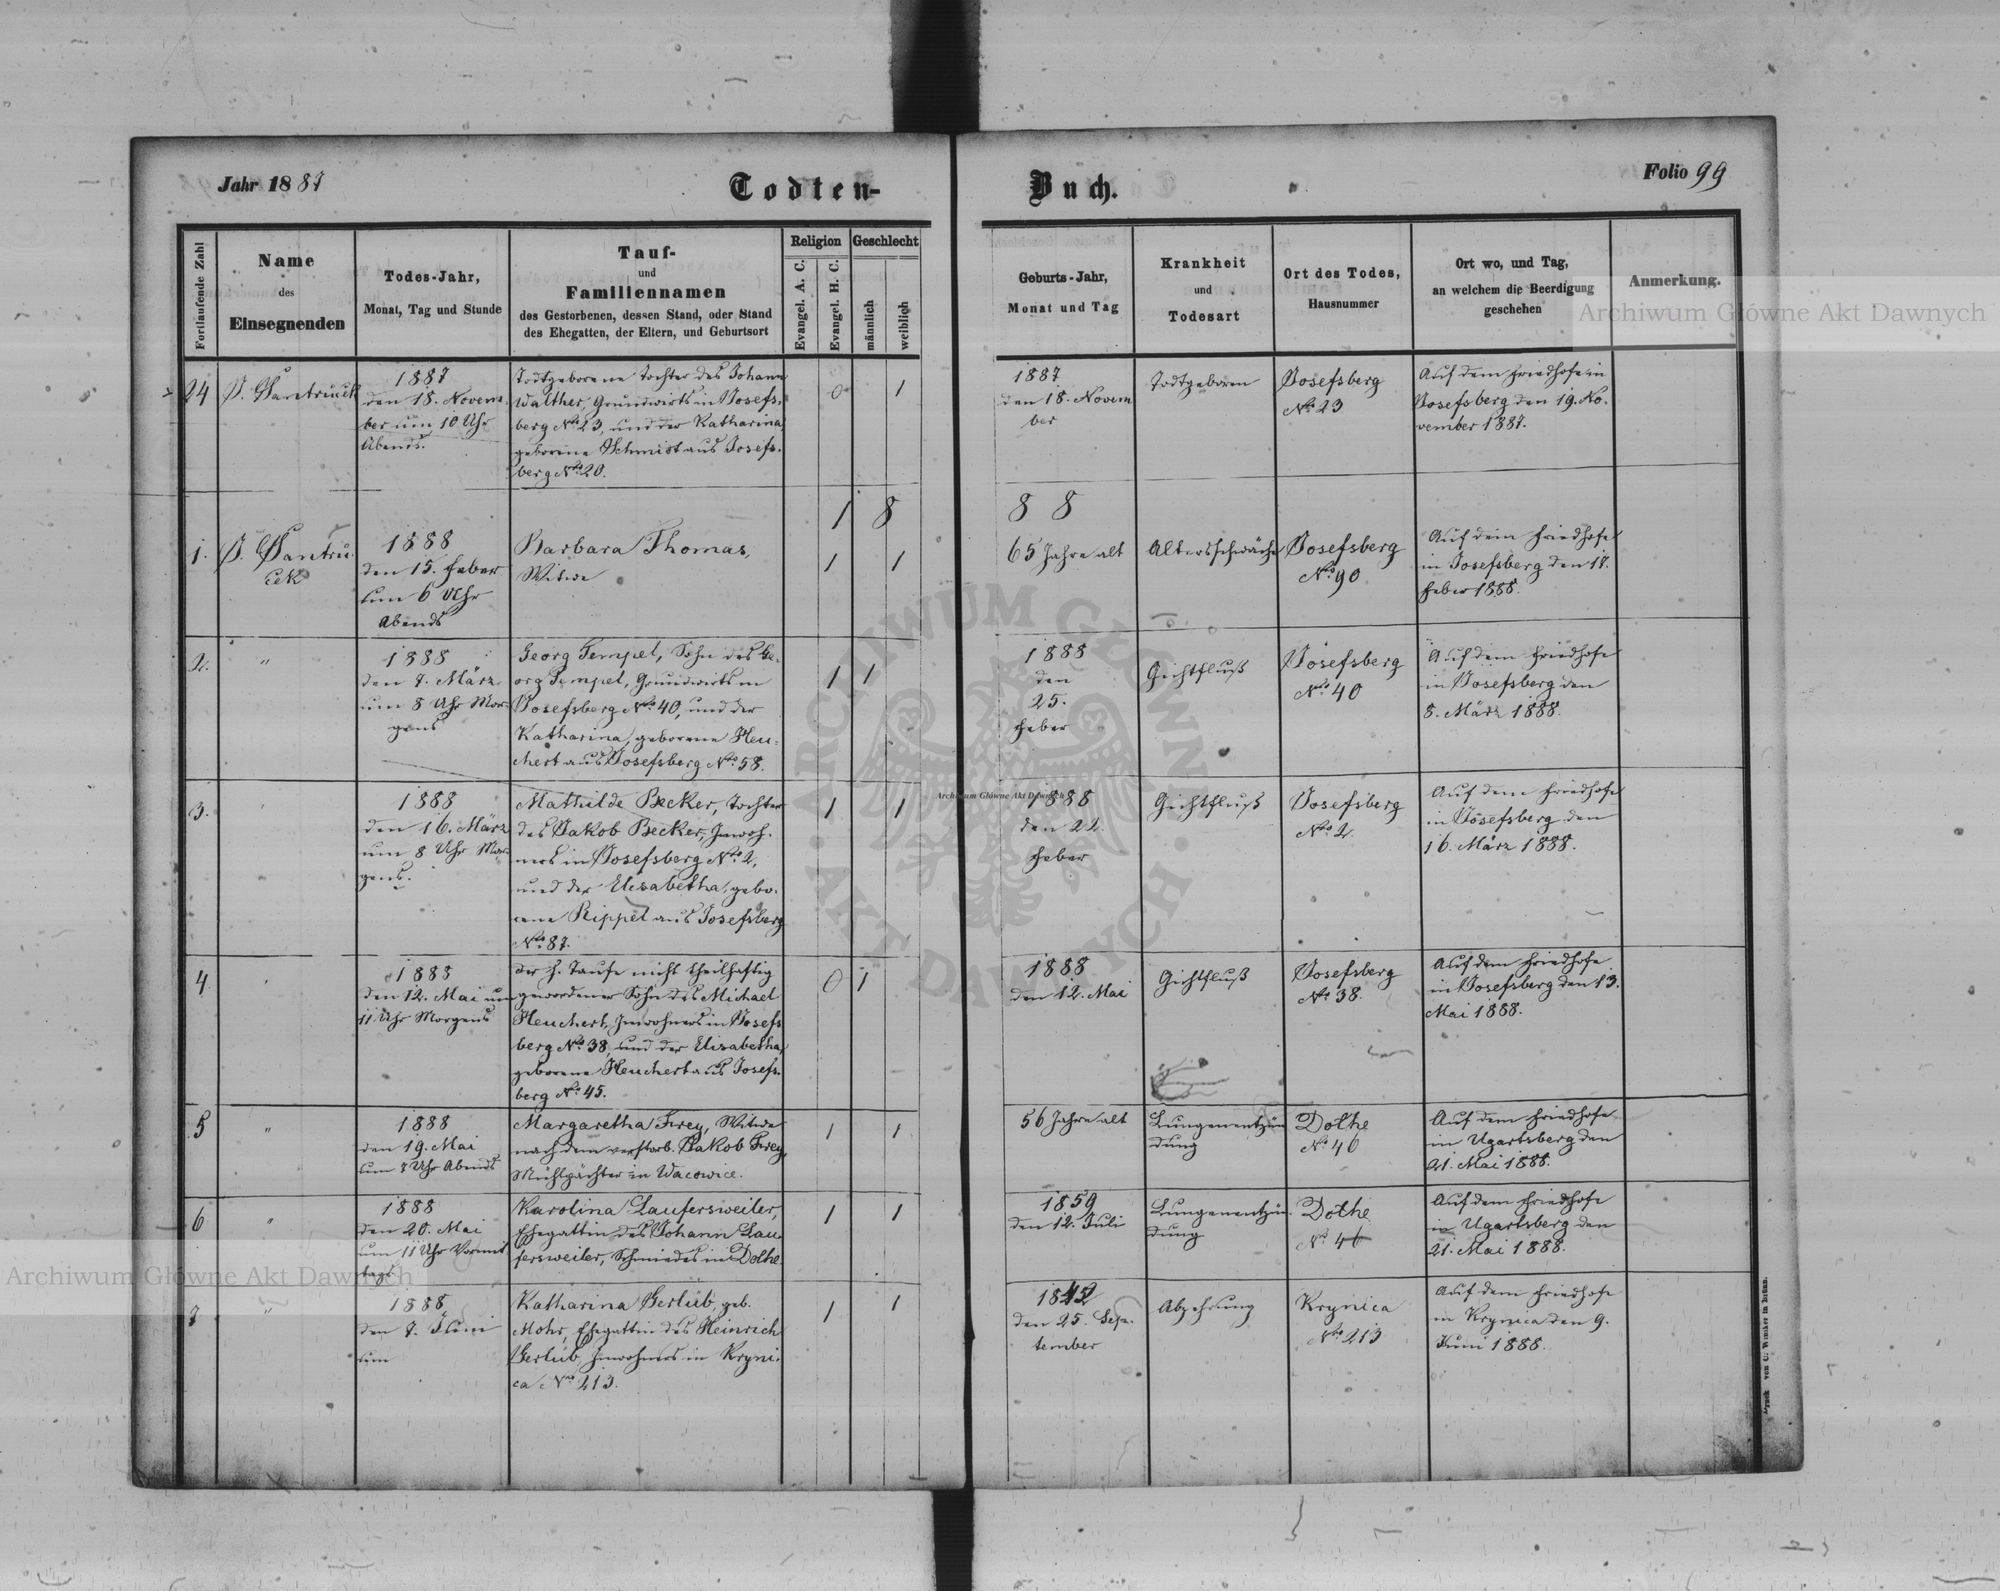 Jahr 1887
Todten-
Buch.
Folio 99
Fortlaufende Zahl
Name
des
Einsegnenden
Todes-Jahr,
Monat, Tag und Stunde
Tauf-
und
Familiennamen
des Gestorbenen, dessen Stand, oder Stand
des Ehegatten, der Eltern, und Geburtsort
Religion
Evangel. A. C.
Evangel. H. C.
Geschlecht
männlich
weiblich
Geburts-Jahr,
Monat und Tag
Krankheit
und
Todesart
Ort des Todes,
Hausnummer
Ort wo, und Tag,
an welchem die Beerdigung
geschehen
Anmerkung.
24
1887
den 18. Novem
ber um 10 Uhr
Abends.
Todtgeborene Tochter des Johann
Walther, Grundwirts in Josefs-
berg No 23, und der Katharina
geborene Schmidt aus Josefs-
berg No 20.
0
1
1887
den 18. Novem
ber
Todtgeboren
Josefsberg
No 23
Auf dem Friedhofe in
Josefsberg den 19. No-
vember 1887.
1 8
8 8
1.
1888
den 15. Feber
um 6 Uhr
Abends
Barbara Thomas,
Witwe
1
1
65 Jahre alt
Altersschwäche
Josefsberg
No 90
Auf dem Friedhofe
in Josefsberg den 17.
Feber 1888.
2.
"
1888
den 7. März
um 8 Uhr Mor-
gens
Georg Tempel, Sohn des Ge-
org Tempel, Grundwirts in
Josefsberg No 40, und der
Katharina, geborene Heu-
chert aus Josefsberg No 58.
1
1
1888
den
25.
Feber
Gichtfluß
Josefsberg
No 40
Auf dem Friedhofe
in Josefsberg den
8. März 1888.
3.
"
1888
den 16. März
um 8 Uhr Mor-
gens.
Mathilde Becker, Tochter
des Jakob Becker, Inwoh-
ners in Josefsberg No 2,
und der Elisabetha, gebo-
rene Rippel aus Josefsberg
No 87.
1
1
1888
den 22.
Feber
Gichtfluß
Josefsberg
No 2.
Auf dem Friedhofe
in Josefsberg den
16. März 1888.
4
"
1888
den 12. Mai um
11 Uhr Morgens
der h. Taufe nicht theilhaftig
gewordener Sohn des Michael
Heuchert, Inwohners in Josefs
berg No 38, und der Elisabetha,
geborene Heuchert aus Josefs-
berg No 45.
0
1
1888
den 12. Mai
Gichtfluß
Josefsberg
No 38.
Auf dem Friedhofe
in Josefsberg den 13.
Mai 1888.
5
"
1888
den 19. Mai
um 7 Uhr Abends
Margaretha Frey, Witwe
nach dem verstorb. Jakob Frey,
Mühlpächter in Wacowice.
1
1
56 Jahre alt
Lungenentzün
dung
Dolhe
No 46
Auf dem Friedhofe
in Ugartsberg den
21. Mai 1888.
6
"
1888
den 20. Mai
um 11 Uhr Vormit
tags
Karolina Laufersweiler,
Ehegattin des Johann Lau
fersweiler, Schmiedes in Dolhe
1
1
1859
den 12. Juli
Lungenentzün-
dung
Dolhe
No 46
Auf dem Friedhofe
in Ugartsberg den
21. Mai 1888.
7
"
1888
den 7. Juni
um
Katharina Gerlüb, geb.
Mohr, Ehegattin des Heinrich
Gerlüb, Inwohners in Kryni-
ca No 213.
1
1
1842
den 25. Sep-
tember
Abzehrung
Krynica
No 213
Auf dem Friedhofe
in Krynica den 9.
Juni 1888.
Archiwum Główne Akt Dawnych
Archiwum Główne Akt Dawnych
Archiwum Główne Akt Dawnych
ARCHIWUM GŁÓWNE
AKT DAWNYCH